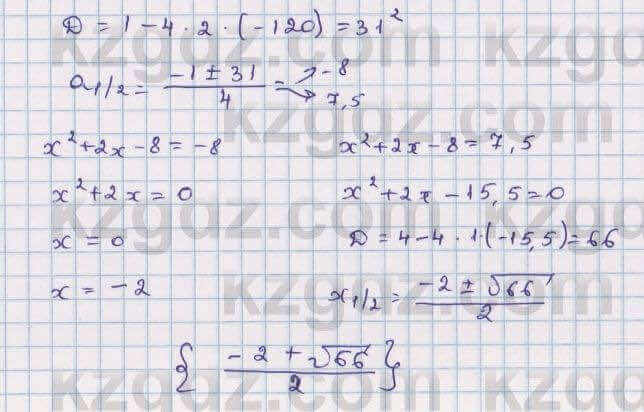 D = 1 - 4 · 2 · (-120) = 31²
a₁/₂ = (-1 ± 31)/4 = → -8
→ 7,5
x² + 2x - 8 = -8
x² + 2x = 0
x = 0
x = -2
x² + 2x - 8 = 7,5
x² + 2x - 15,5 = 0
D = 4 - 4 · 1 · (-15,5) = 66
x₁/₂ = (-2 ± √66)/2
{ (-2 + √66)/2 }
kzgdz.com